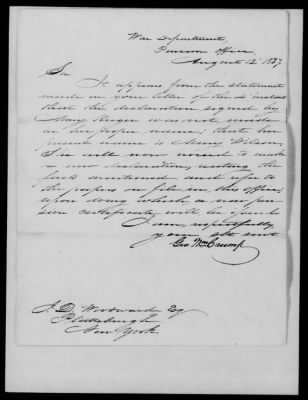 War Department,
Pension Office,
August 12 1837
Sir
It appears from the statement
made in your letter of the 8 instant
that the declaration signed by
Mary Kruger was not made
in her proper name; that her
present name is Mary Wilson,
She will now need to make
a new declaration, reciting the
facts mentioned and refer to
the papers on file in this office;
upon doing which a new pen
sion certificate will be issued
I am, respectfully
your obt servt
Geo. Wm Crump
J. D. Woodward Esq
Plattsburgh
New York.